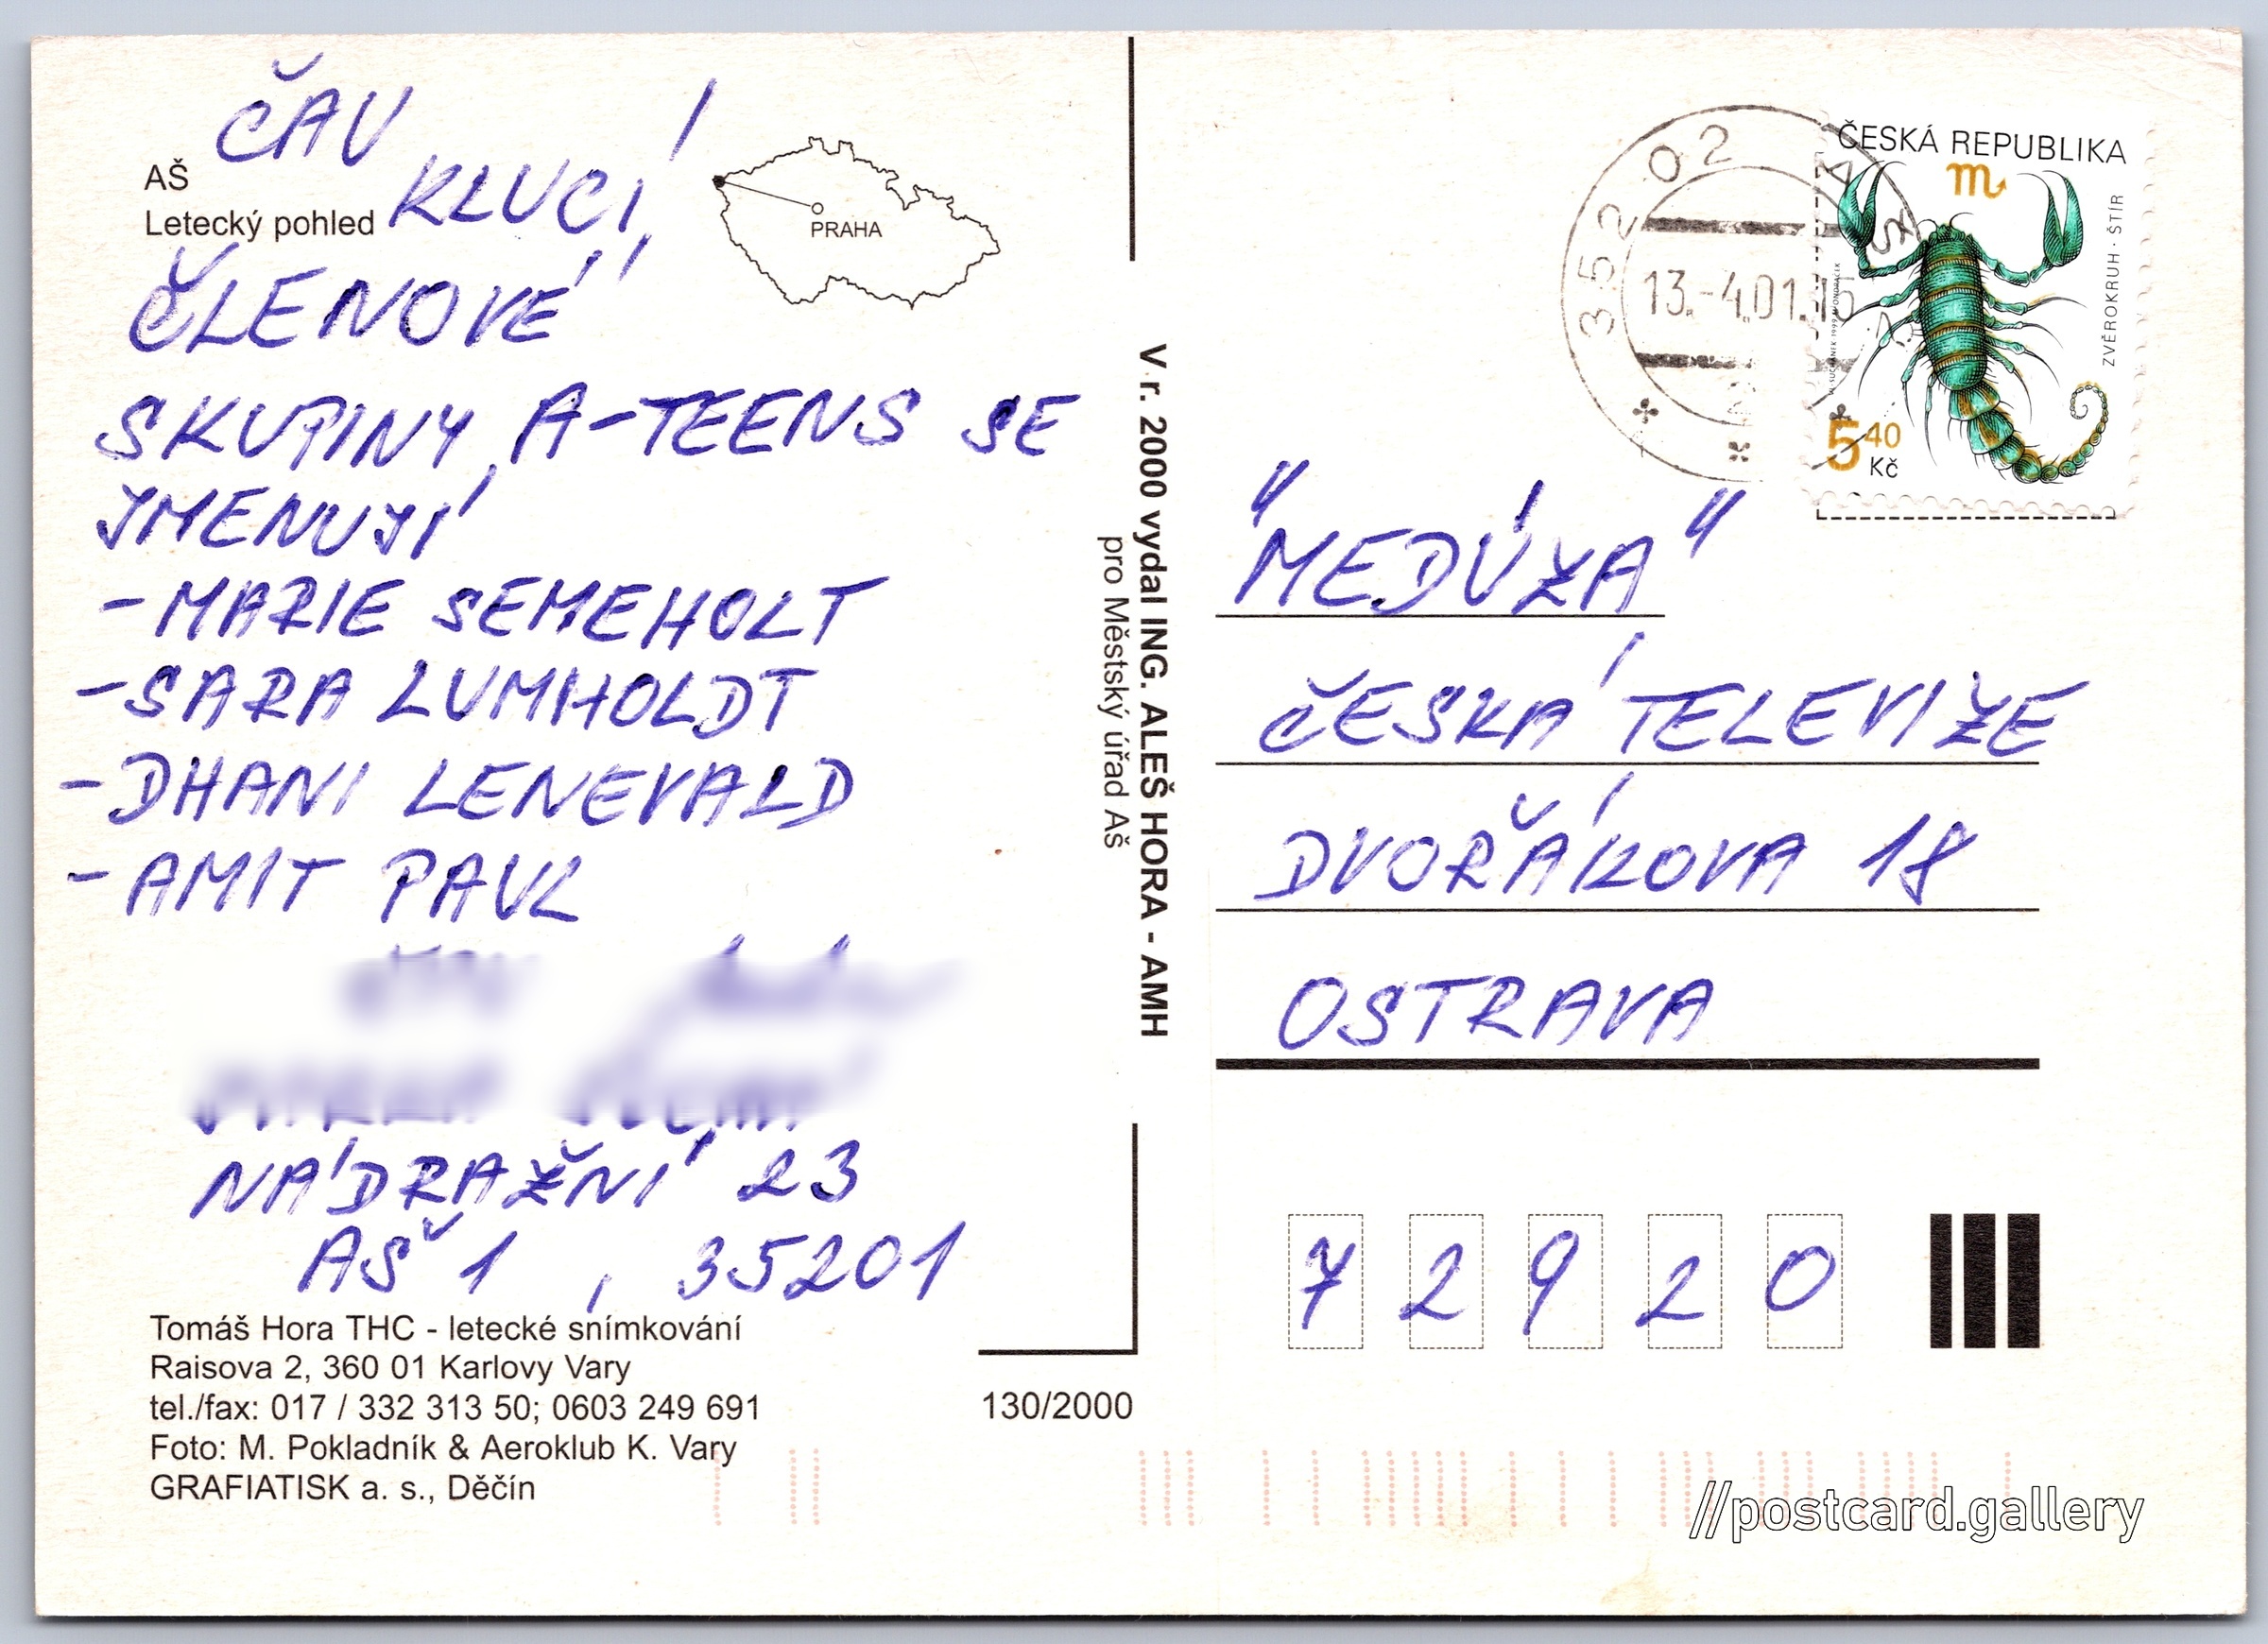 ČAV
KLUCI,
AŠ
Letecký pohled
PRAHA
ČLENOVÉ
SKUPINY A-TEENS SE
JMENUJÍ
-MARIE SEMEHOLT
-SARA LUMHOLDT
-DHANI LENEVALD
-AMIT PAUL
NÁDRAŽNÍ 23
AŠ 1, 35201
Tomáš Hora THC - letecké snímkování
Raisova 2, 360 01 Karlovy Vary
tel./fax: 017 / 332 313 50; 0603 249 691
Foto: M. Pokladník & Aeroklub K. Vary
GRAFIATISK a. s., Děčín
130/2000
V r. 2000 vydal ING. ALEŠ HORA - AMH
pro Městský úřad Aš
352 02 AŠ 2
13.-4.01.16
ČESKÁ REPUBLIKA
ZVĚROKRUH · ŠTÍR
5 40 Kč
"MEDÚZA"
ČESKÁ TELEVIZE
DVOŘÁKOVA 18
OSTRAVA
72920
//postcard.gallery